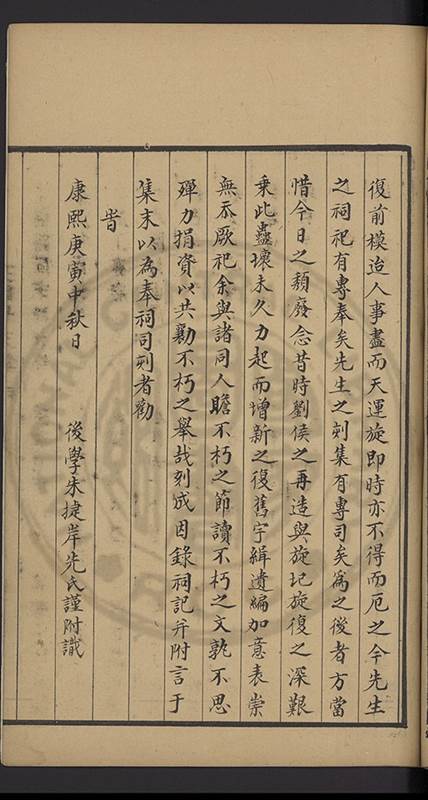 復前模迨人事盡而天運旋即時亦不得而厄之今先生
之祠祀有專奉矣先生之刻集有專司矣為之後者方當
惜今日之頹廢念昔時劉侯之再造與旋圮旋復之深艱
乗此蠱壞未久力起而增新之復舊宇緝遺編加意表崇
無忝厥祀余與諸同人瞻不朽之節讀不朽之文孰不思
殫力捐資以共勷不朽之舉哉刻成因錄祠記并附言于
集末以為奉祠司刻者勸
旹
康熙庚寅中秋日　後學朱捷岸先氏謹附識